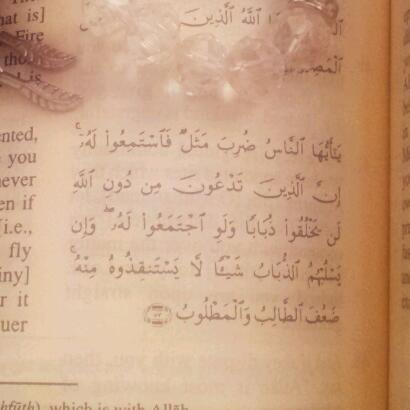 hat is]
Fire
is
ٱللَّهُ ٱلَّذِينَ
ented,
you
never
en if
[i.e.,
fly
iny]
r it
uer
يَٰٓأَيُّهَا ٱلنَّاسُ ضُرِبَ مَثَلٌ فَٱسْتَمِعُوا۟ لَهُۥٓ ۚ
إِنَّ ٱلَّذِينَ تَدْعُونَ مِن دُونِ ٱللَّهِ
لَن يَخْلُقُوا۟ ذُبَابًا وَلَوِ ٱجْتَمَعُوا۟ لَهُۥ ۖ وَإِن
يَسْلُبْهُمُ ٱلذُّبَابُ شَيْـًٔا لَّا يَسْتَنقِذُوهُ مِنْهُ ۚ
ضَعُفَ ٱلطَّالِبُ وَٱلْمَطْلُوبُ ﴿٧٣﴾
hfūth), which is with Allāh